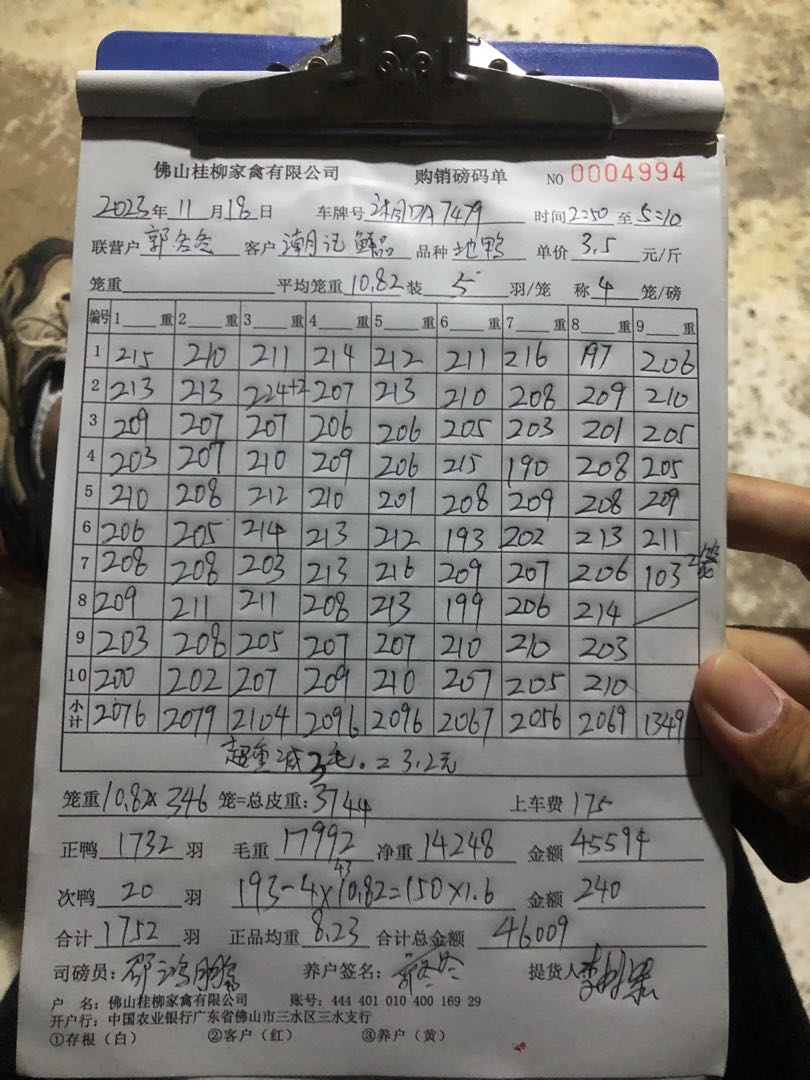 佛山桂柳家禽有限公司 购销磅码单 NO 0004994
2023年 11月 18日 车牌号 DA7479 时间 2:50 至 5:10
联营户 郭冬冬 客户 潮记鲜品 品种 地鸭 单价 3.5 元/斤
笼重 平均笼重 10.82 装 5 羽/笼 称 4 笼/磅
编号 1 重 2 重 3 重 4 重 5 重 6 重 7 重 8 重 9 重
1 215 210 211 214 212 211 216 197 206
2 213 213 224+2 207 213 210 208 209 210
3 209 207 207 206 206 205 203 201 205
4 203 207 210 209 206 215 190 208 205
5 210 208 212 210 201 208 209 208 209
6 206 205 214 213 212 193 202 213 211
7 208 208 203 213 216 209 207 206 103 2笼
8 209 211 211 208 213 199 206 214
9 203 208 205 207 207 210 210 203
10 200 202 207 209 210 207 205 210
小计 2076 2079 2104 2096 2096 2067 2056 2069 1349
超重减3毛。= 3.2元
笼重 10.82 x 346 笼=总皮重: 3744 上车费 175
正鸭 1732 羽 毛重 17992 净重 14248 金额 45594
43
次鸭 20 羽 193-4×10.82=150×1.6 金额 240
合计 1752 羽 正品均重 8.23 合计总金额 46009
司磅员: 养户签名: 郭冬冬 提货人
户 名: 佛山桂柳家禽有限公司 账号: 444 401 010 400 169 29
开户行: 中国农业银行广东省佛山市三水区三水支行
①存根（白） ②客户（红） ③养户（黄）